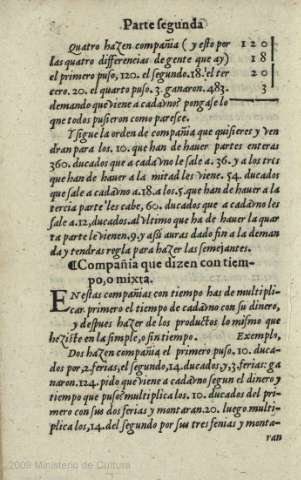 Parte segunda
Quatro hazen compañia (y esto por 1 2 0
las quatro differencias de gente que ay) 1 8
el primero puso, 120. el segundo. 18. el ter 2 0
cero. 20. el quarto puso. 3. ganaron. 483. 3
demando que viene a cadavno? pongase lo
que todos pusieron como paresce.
Y sigue la orden de compañia que quisieres y ven
dran para los. 10. que han de hauer partes enteras
360. ducados que a cadavno le sale a. 36. y a los tres
que han de hauer a la mitad les viene. 54. ducados
que sale a cadavno a. 18. a los. 5. que han de hauer a la
tercia parte les cabe, 60. ducados que a cadavno les
sale a. 12, ducados. al vltimo que ha de hauer la quar
ta parte le vienen. 9. y assi auras dado fin a la deman
da y tendras regla para hazer las semejantes.
¶ Compañia que dizen con tiem-
po, o mixta.
ENestas compañias con tiempo has de multipli
car primero el tiempo de cadavno con su dinero,
y despues hazer de los productos lo mismo que
heziste en la simple, o sin tiempo. Exemplo,
Dos hazen compañia el primero puso. 10. duca-
dos por, 2. ferias, el segundo, 14. ducados y, 3. ferias: ga
naron. 124. pido que viene a cadavno segun el dinero y
tiempo que puso? multiplica los. 10. ducados del pri-
mero con sus dos ferias y montaran. 20. luego multi-
plica los, 14. del segundo por sus tres ferias y monta-
ran
2009 Ministerio de Cultura